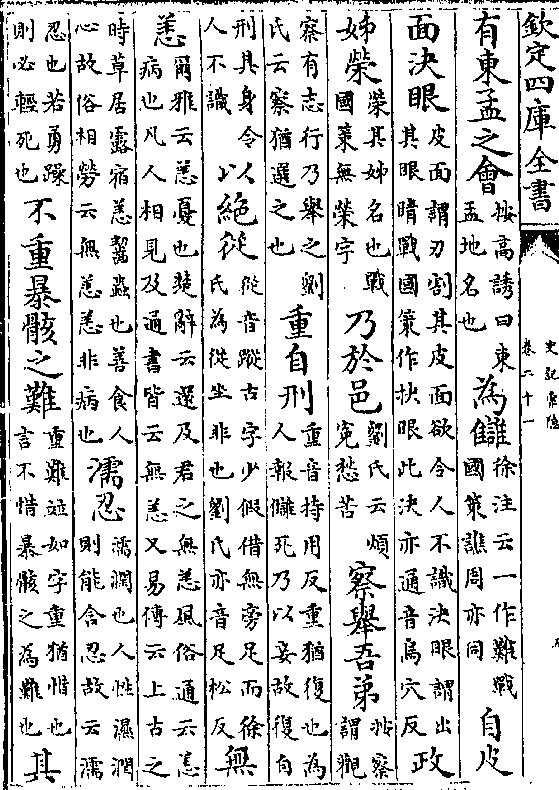 欽定四庫全書
史記索隱
卷二十一
有東孟之會按高誘曰東孟地名也為讎徐注云一作難戰國策譙周亦同自皮
面決眼皮面謂刃割其皮面欲令人不識決眼謂出其眼睛戰國策作抉眼此決亦通音烏穴反政
姊榮榮其姊名也戰國策無榮字乃於邑劉氏云煩寃愁苦察舉吾弟按察謂觀
察有志行乃舉之劉氏云察猶選之也重自刑重音持用反重猶復也為人報讎死乃以妾故復自
刑其身令人不識以絕從從音蹤古字少假借無旁足而徐氏為從坐非也劉氏亦音足松反無
恙爾雅云恙憂也楚辭云還及君之無恙風俗通云恙病也凡人相見及通書皆云無恙又易傳云上古之
時草居露宿恙齧蟲也善食人心故俗相勞云無恙恙非病也濡忍濡潤也人性濕潤則能含忍故云濡
忍也若勇躁則必輕死也不重暴骸之難重難並如字重猶惜也言不惜暴骸之為難也其